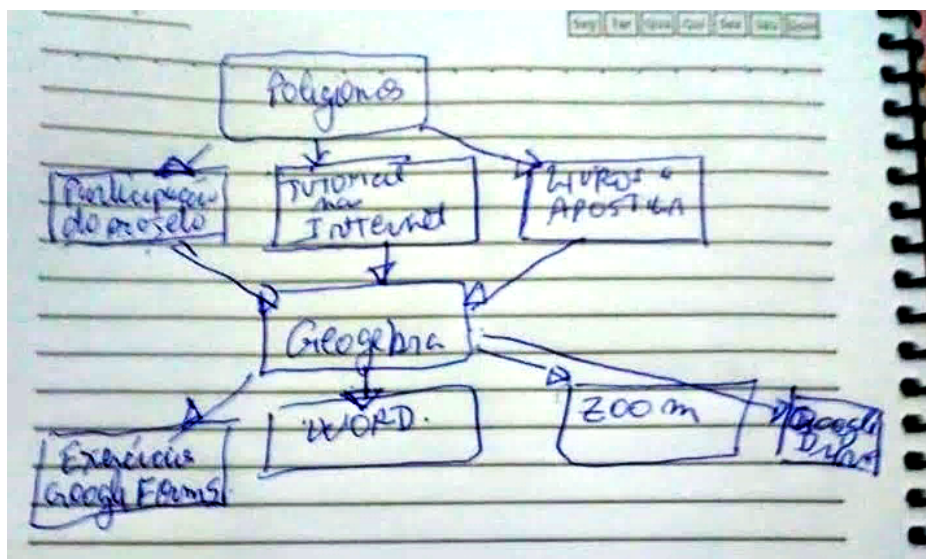 Seg Ter Qua Qui Sex Sáb Dom
Polígonos
Participação
do projeto
TUTORIAL
na
INTERNET
LIVROS e
APOSTILA
Geogebra
Exercícios
Google Forms
WORD.
ZOOM
Google